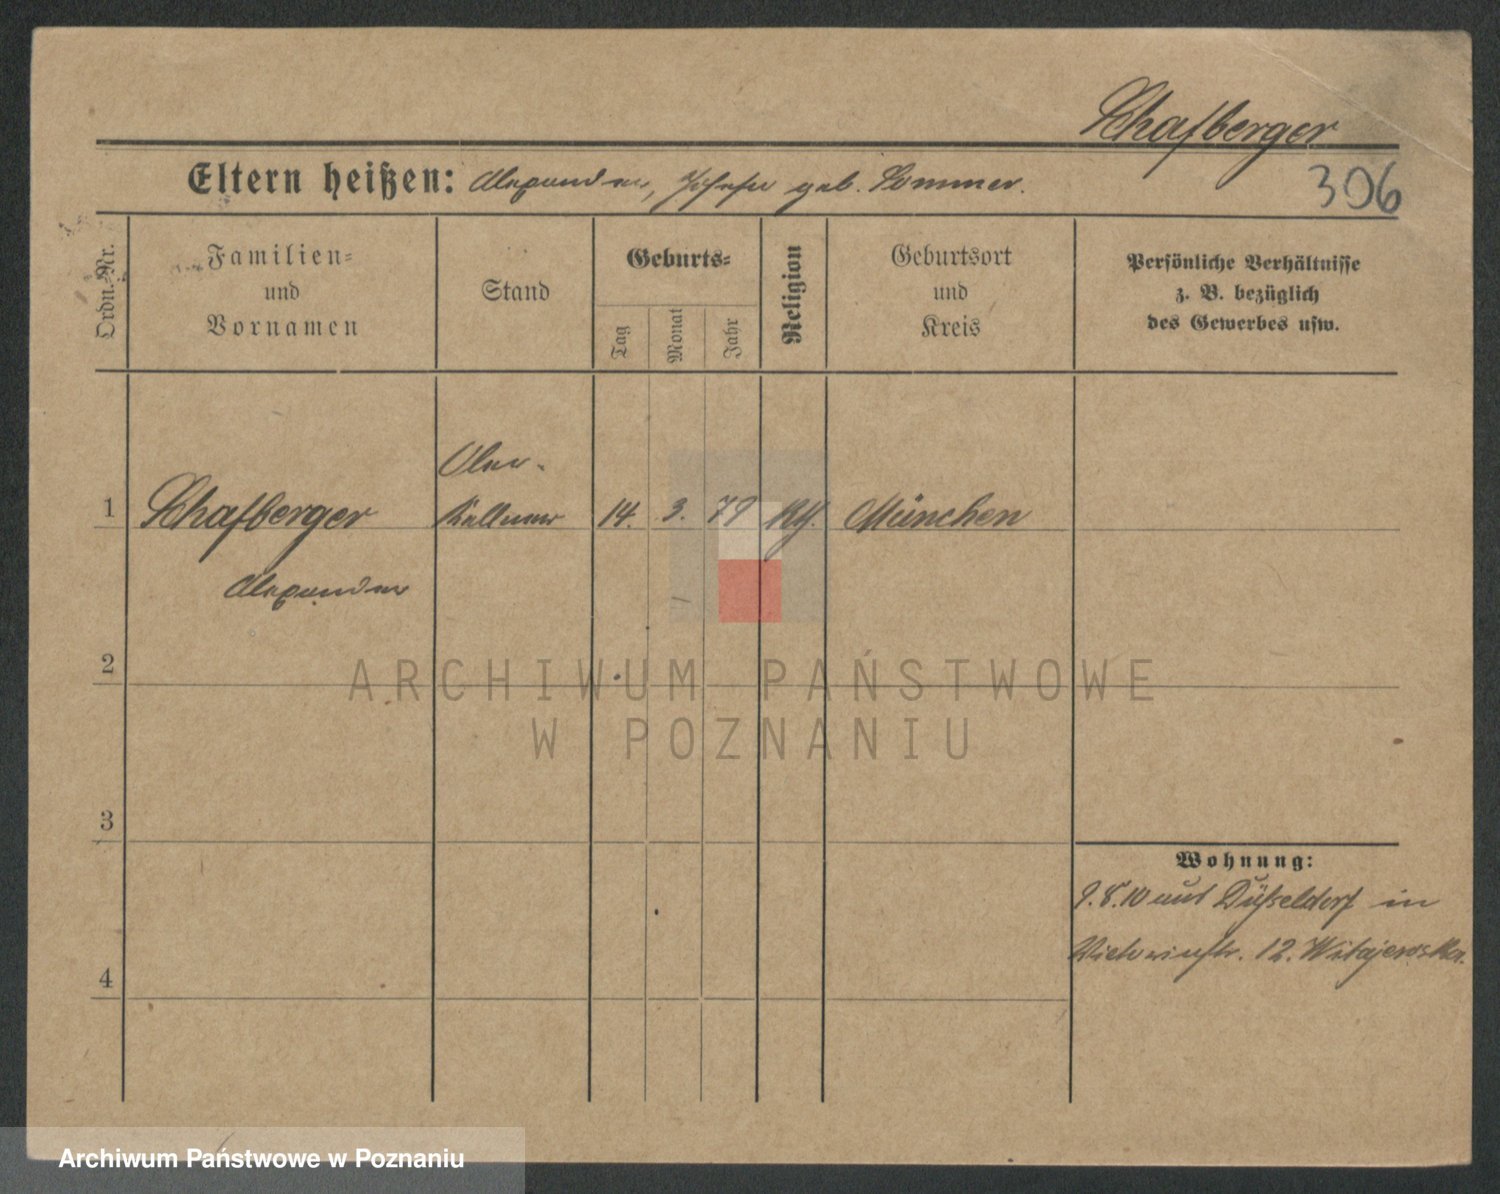 Schafberger
Eltern heißen: Alexander, Josefa geb. Sommer.
306
Ordn.-Nr.
Familien-
und
Vornamen
Stand
Geburts-
Tag
Monat
Jahr
Religion
Geburtsort
und
Kreis
Persönliche Verhältnisse
z. B. bezüglich
des Gewerbes usw.
Ober-
1 Schafberger kellner 14. 3. 79 München
Alexander
2
ARCHIWUM PAŃSTWOWE
W POZNANIU
3
Wohnung:
9.8.10 aus Düsseldorf in
Victoriastr. 12.
4
Archiwum Państwowe w Poznaniu